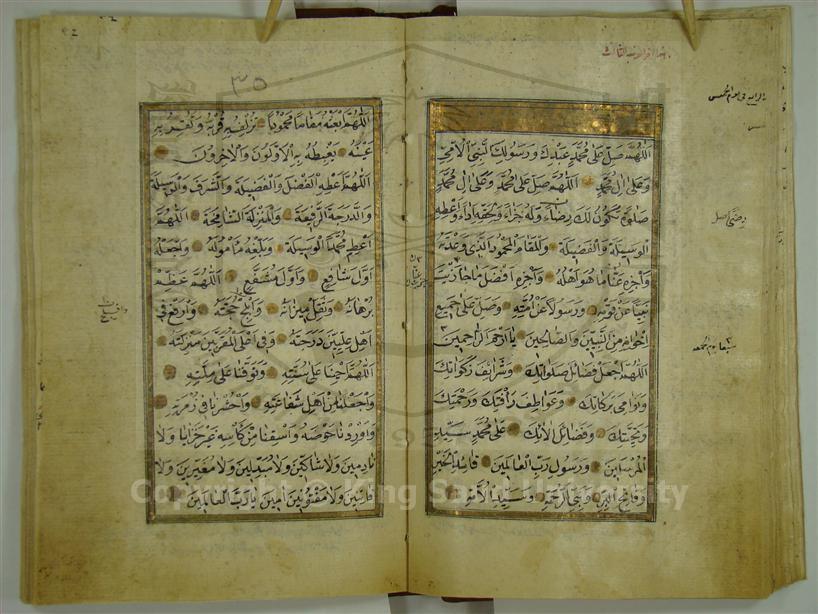 اللهم صل على محمد عبدك ورسولك النبي الأمي
وعلى آل محمد اللهم صل على محمد وعلى آل محمد
صلوة تكون لك رضاء وله جزاء ولحقه اداء واعطه
الوسيلة والفضيلة والمقام المحمود الذي وعدته
واجزه عنا ما هو اهله واجزه افضل ما جازيت
نبيا عن قومه ورسولا عن امته وصل على جميع
اخوانه من النبيين والصالحين يا ارحم الراحمين
اللهم اجعل فضائل صلواتك وشرائف زكواتك
ونوامي بركاتك وعواطف رافتك ورحمتك
وتحيتك وفضائل الائك على محمد سيد
المرسلين ورسول رب العالمين قائد الخير
وفاتح البر ونبي الرحمة وسيد الامة
٣٥
اللهم ابعثه مقاما محمودا تزلف به قربه وتقر به
عينه يغبطه به الاولون والاخرون
اللهم اعطه الفضل والفضيلة والشرف والوسيلة
والدرجة الرفيعة والمنزلة الشامخة اللهم
اعط محمدا الوسيلة وبلغه مأموله واجعله
اول شافع واول مشفع اللهم عظم
برهانه وثقل ميزانه وابلج حجته وارفع في
اهل عليين درجته وفي اعلى المقربين منزلته
اللهم احينا على سنته وتوفنا على ملته
واجعلنا من اهل شفاعته واحشرنا في زمرته
واوردنا حوضه واسقنا من كاسه غير خزايا ولا
نادمين ولا شاكين ولا مبدلين ولا مغيرين ولا
فاتنين ولا مفتونين امين يا رب العالمين
Copyright © King Saud University